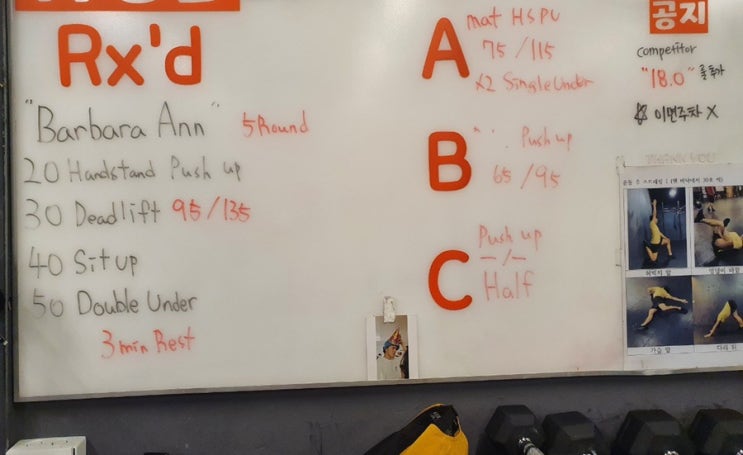 Rx'd
"Barbara Ann" 5 Round
20 Handstand Push up
30 Deadlift 95/135
40 Sit up
50 Double Under
3 min Rest
A
mat HSPU
75/115
x2 Single Under
B
Push up
65/95
C
Push up
-/-
Half
공지
competitor
"18.0"
☆ 이면주차 X
THANK YOU